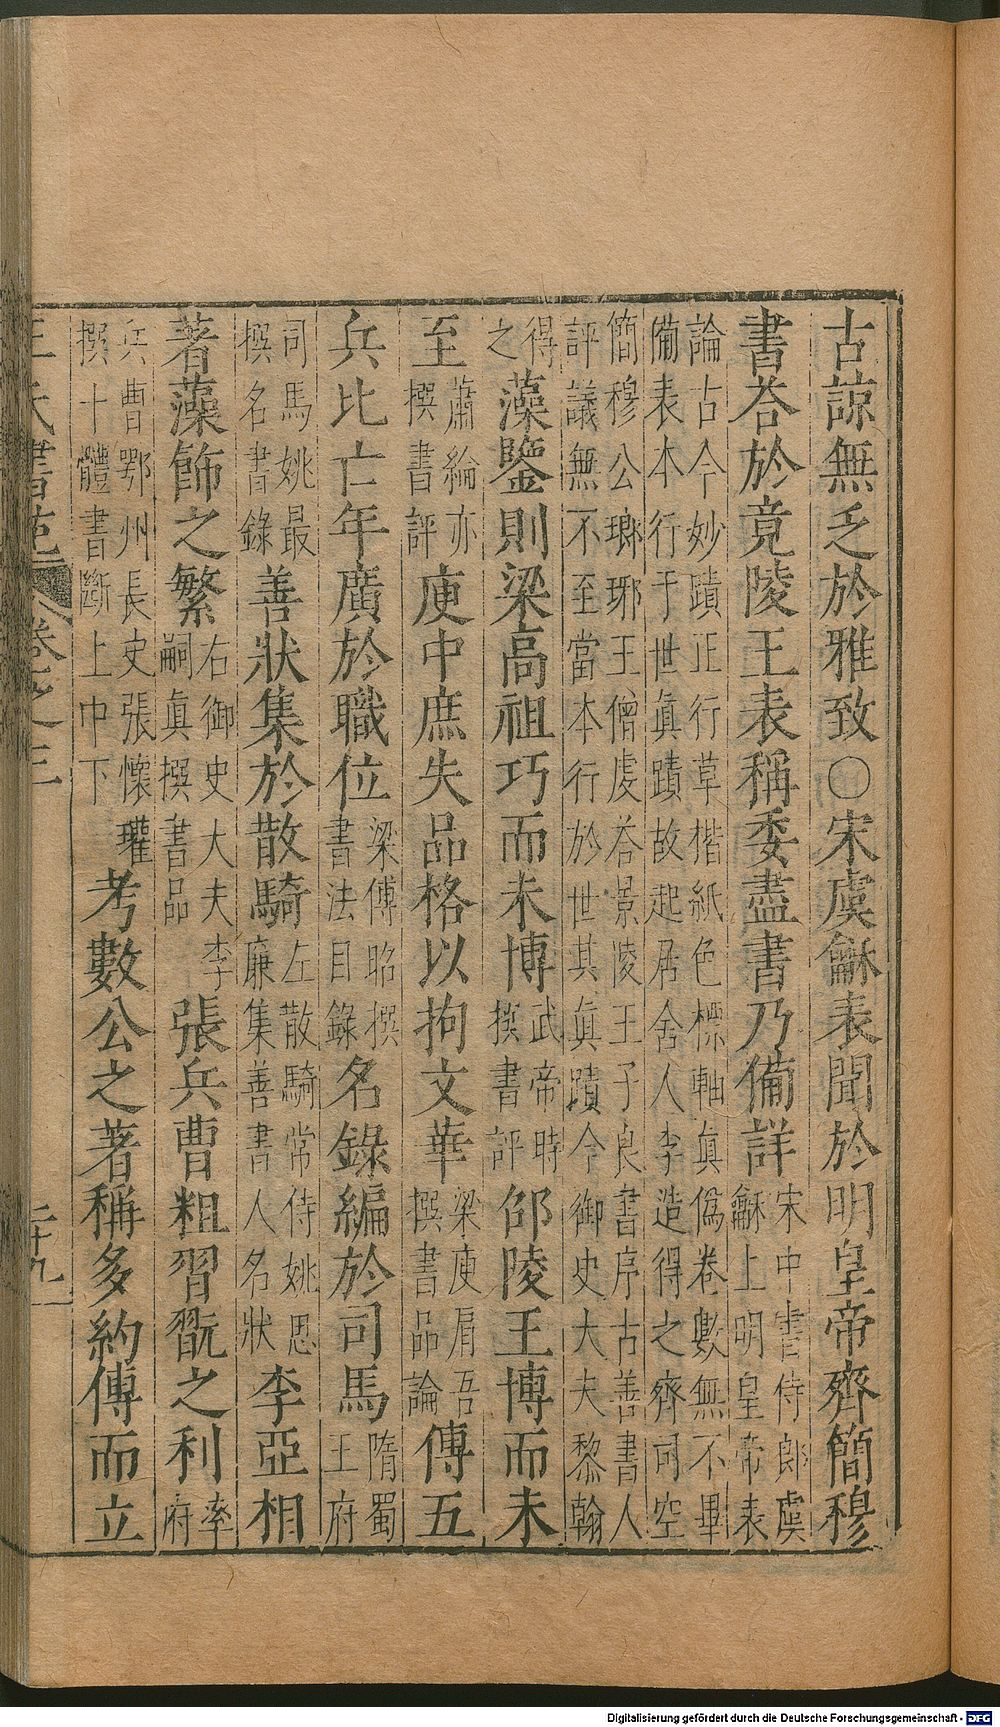 古諒無乏於雅致○宋虞龢表聞於明皇帝齊簡穆
書荅於竟陵王表稱委盡書乃備詳宋中書侍郎虞龢上明皇帝表
論古今妙蹟正行草楷紙色標軸眞僞卷數無不畢備表本行于世眞蹟故起居舍人李造得之齊司空
簡穆公瑯琊王僧虔荅景陵王子良書序古善書人評議無不至當本行於世其眞蹟今御史大夫黎翰
得之藻鑒則梁高祖巧而未博武帝時撰書評邵陵王博而未
至蕭綸亦撰書評庾中庶失品格以拘文華梁庾肩吾撰書品論傳五
兵比亡年廣於職位梁傅昭撰書法目錄名錄編於司馬隋蜀王府
司馬姚最撰名書錄善狀集於散騎左散騎常侍姚思廉集善書人名狀李亞相
著藻飾之繁右御史大夫李嗣眞撰書品張兵曹粗習翫之利率府
兵曹鄂州長史張懷瓘撰十體書斷上中下考數公之著稱多約傳而立
王氏書苑 卷之三 二十九
Digitalisierung gefördert durch die Deutsche Forschungsgemeinschaft - DFG